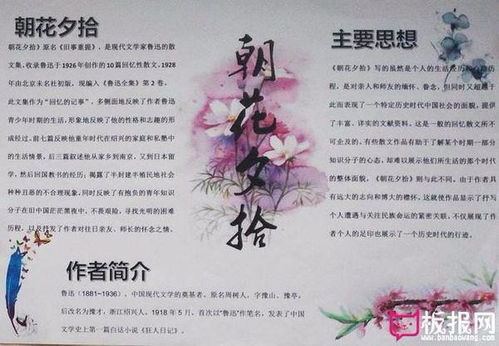 朝花夕拾
朝花夕拾》原名《旧事重提》，是现代文学家鲁迅的散
文集，收录鲁迅于1926年创作的10篇回忆性散文，1928
年由北京未名社初版，现编入《鲁迅全集》第2卷。
此文集作为“回忆的记事”，多侧面地反映了作者鲁迅
青少年时期的生活，形象地反映了他的性格和志趣的形
成经过。前七篇反映他童年时代在绍兴的家庭和私塾中
的生活情景，后三篇叙述他从家乡到南京，又到日本留
学，然后回国教书的经历；揭露了半封建半殖民地社会
种种丑恶的不合理现象，同时反映了有抱负的青年知识
分子在旧中国茫茫黑夜中，不畏艰险，寻找光明的困难
历程，以及抒发了作者对往日亲友、师长的怀念之情。
朝花夕拾
主要思想
《朝花夕拾》写的虽然是个人的生活经历和心路历
程，是对亲人和师友的缅怀、眷念，但同时又超越于
此而表现了一个特定历史时期中国社会的面貌，提供
了丰富、详实的文献资料，这是一般的回忆散文所不
可企及的。有些散文作品有助于了解某个时期一部分
知识分子的心态，却难以展示他们所生活的那个时代
的整体面貌，《朝花夕拾》则与此不同。由于作者具有
远大的志向和博大的襟怀，这就使作品显示了抒写
个人遭遇与关注民族命运的紧密关联，不仅展现了作
者个人的足印也展示了一个历史时代的行迹。
作者简介
鲁迅（1881~1936），中国现代文学的奠基者。原名周树人，字豫山、豫亭，
后改名为豫才，浙江绍兴人。1918年5月，首次以“鲁迅”作笔名，发表了中国
文学史上第一篇白话小说《狂人日记》。
板报网
www.banbaowang.com